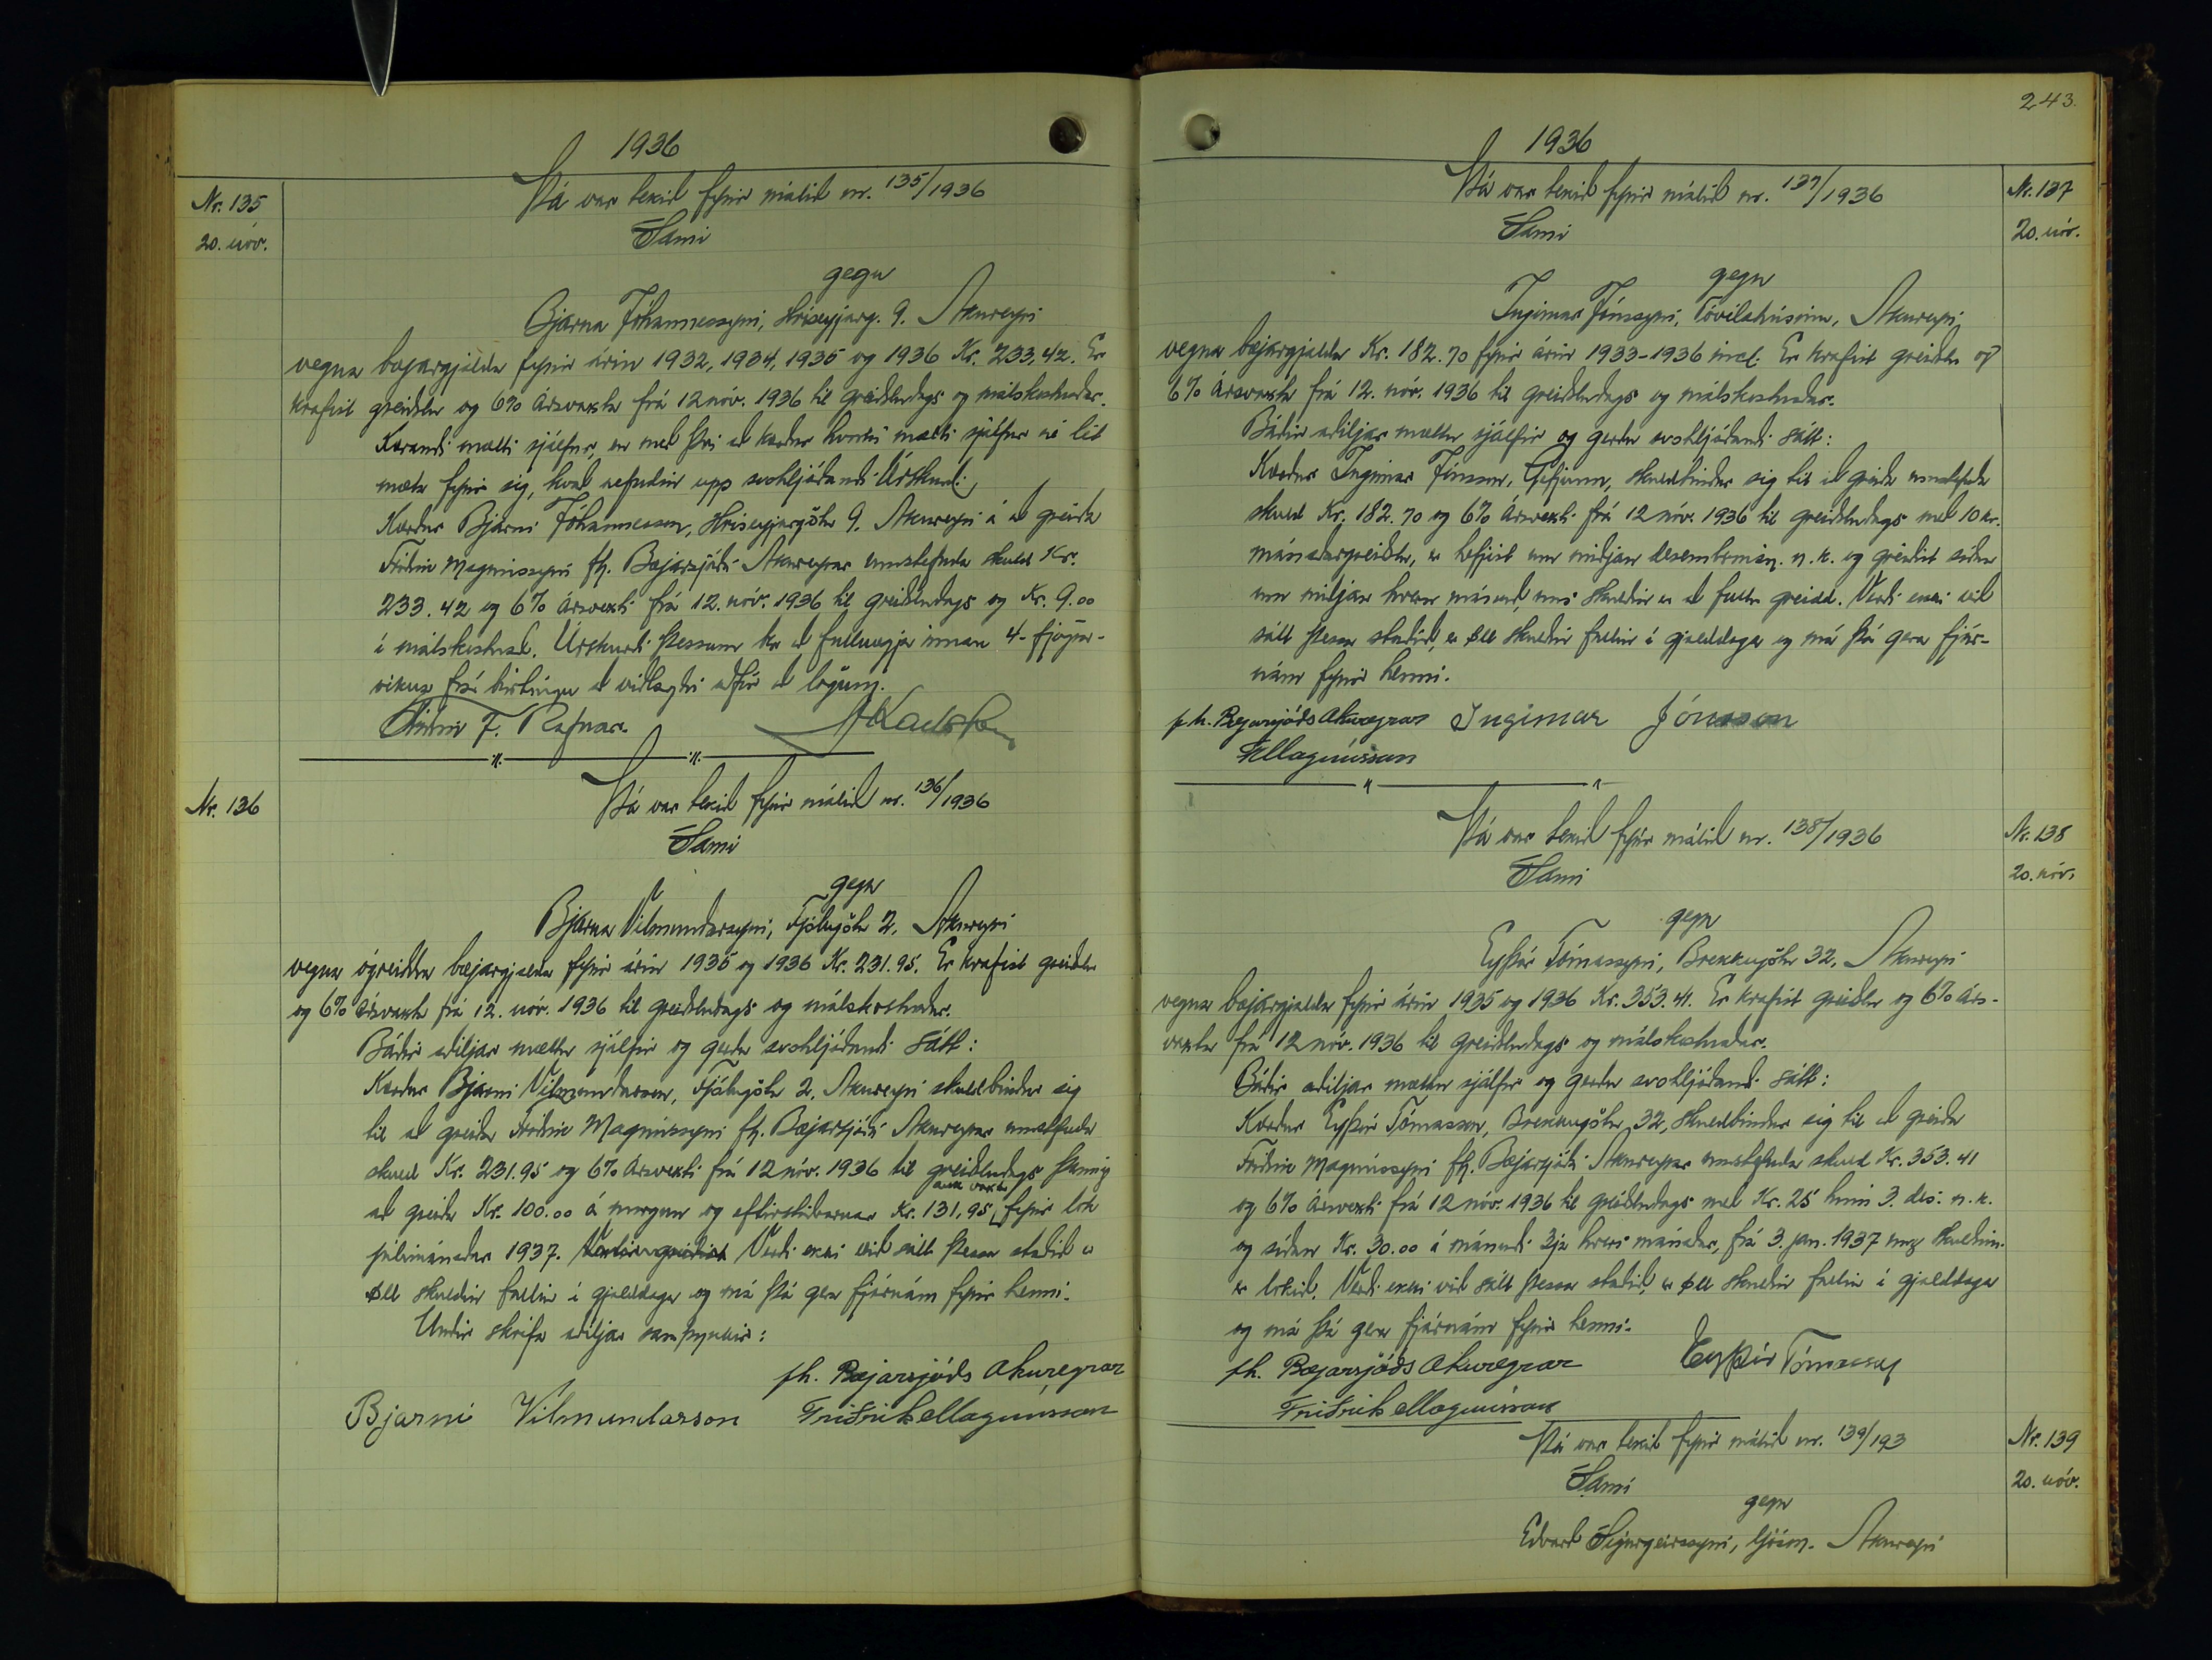 1936
Nr. 135
20. nóv.
Þá var tekið fyrir málið nr. 135/1936
Sami
gegn
Bjarna Jóhannessyni, Hríseyjarg. 9. Akureyri
vegna bæjargjalda fyrir árin 1932, 1934, 1935 og 1936 Kr. 233,42. Er
krafist greiðslu og 6% ársvaxta frá 12 nóv. 1936 til greiðsludags og málskostnaðar.
Kærandi mætti sjálfur, en með því að kærður hvorki mætti sjálfur né lét
mæta fyrir sig, kvað nefndin upp svohljóðandi Úrskurð:
Kærður Bjarni Jóhannesson, Hríseyjargötu 9. Akureyri á að greiða
Friðrik Magnússyni fh. Bæjarsjóðs Akureyrar umstefnda skuld Kr.
233.42 og 6% ársvexti frá 12. nóv. 1936 til greiðsludags og Kr. 9.00
í málskostnað. Úrskurði þessum ber að fullnægja innan 4-fjögra-
vikna frá birtingu að viðlagðri aðför að lögum.
Friðrik J. Rafnar.
-"- -"-
Nr. 136
Þá var tekið fyrir málið nr. 136/1936
Sami
gegn
Bjarna Vilmundarsyni, Fjólugötu 2, Akureyri
vegna ógreiddra bæjargjalda fyrir árin 1935 og 1936 Kr. 231.95. Er krafist greiðslu
og 6% ársvaxta frá 12. nóv. 1936 til greiðsludags og málskostnaðar.
Báðir aðiljar mættu sjálfir og gerðu svohljóðandi sátt:
Kærður Bjarni Vilmundarson, Fjólugötu 2, Akureyri skuldbindur sig
til að greiða Friðrik Magnússyni fh. Bæjarsjóðs Akureyrar umstefnda
skuld Kr. 231.95 og 6% ársvexti frá 12 nóv. 1936 til greiðsludags þannig
að greiða Kr. 100.00 á morgun og eftirstöðvarnar Kr. 131,95 auk vaxta fyrir lok
júlímánaðar 1937. Verði ekki við sátt þessa staðið er
öll skuldin fallin í gjalddaga og má þá gera fjárnám fyrir henni.
Undir skrifa aðiljar samþykkir:
fh. Bæjarsjóðs Akureyrar
Bjarni Vilmundarson Friðrik Magnússon
243.
1936
Nr. 137
20. nóv.
Þá var tekið fyrir málið nr. 137/1936
Sami
gegn
Ingimar Jónssyni, Tóvéla húsinu, Akureyri,
vegna bæjargjalda Kr. 182.70 fyrir árin 1933-1936 incl. Er krafist greiðslu og
6% ársvaxta frá 12. nóv. 1936 til greiðsludags og málskostnaðar.
Báðir aðiljar mættu sjálfir og gerðu svohljóðandi sátt:
Kærður Ingimar Jónsson, Gefjunn, skuldbindur sig til að greiða umstefnda
skuld Kr. 182.70 og 6% ársvexti frá 12 nóv. 1936 til greiðsludags með 10 kr.
mánaðargreiðslu, er hefjist um miðjan desembermán. n.k. og greiðist síðan
um miðjan hvern mánuð, uns skuldin er að fullu greidd. Verði ekki við
sátt þessa staðið, er öll skuldin fallin í gjalddaga og má þá gera fjár-
nám fyrir henni.
p.h. Bæjarsjóðs Akureyrar Ingimar Jónsson
FrMagnússon
-"- -"-
Nr. 138
20. nóv.
Þá var tekið fyrir málið nr. 138/1936
Sami
gegn
Eyþór Tómassyni, Brekkugötu 32, Akureyri
vegna bæjargjalda fyrir árin 1935 og 1936 Kr. 353.41. Er krafist greiðslu og 6% árs-
vaxta frá 12 nóv. 1936 til greiðsludags og málskostnaðar.
Báðir aðiljar mættu sjálfir og gerðu svohljóðandi sátt:
Kærður Eyþór Tómasson, Brekkugötu 32, skuldbindur sig til að greiða
Friðrik Magnússyni fh. Bæjarsjóðs Akureyrar umstefnda skuld Kr. 353.41
og 6% ársvexti frá 12 nóv. 1936 til greiðsludags með Kr. 25 hinn 3. des. n.k.
og síðan Kr. 30.00 á mánuði 3ja hvers mánaðar, frá 3. jan. 1937 unz skuldin
er lokið. Verði ekki við sátt þessa staðið, er öll skuldin fallin í gjalddaga
og má þá gera fjárnám fyrir henni.
fh. Bæjarsjóðs Akureyrar Eyþór Tómasson
Friðrik Magnússon
Nr. 139
20. nóv.
Þá var tekið fyrir málið nr. 139/193
Sami
gegn
Edvard Sigurgeirssyni, ljósm. Akureyri